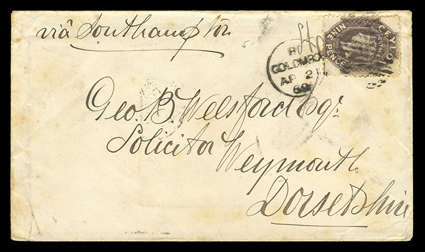 via Southampton
COLOMBO
AP 2
69
NINEPENCE
CEYLON
Geo. B. Welsford Esqr.
Solicitor
Weymouth
Dorsetshire